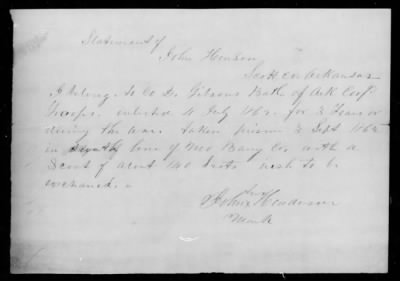 Statement of
John Henson
Scott Co Arkansas
I belong to Co D. Gibsons Batt. of Ark Conf.
Troops. enlisted 4 July 1862 for 3 Years or
during the war. taken prisoner 3 Sept. 1862
in line of Mo Barry Co with a
Scout of about 140 wish to be
exchanged.
his
John x Henderson
Mark